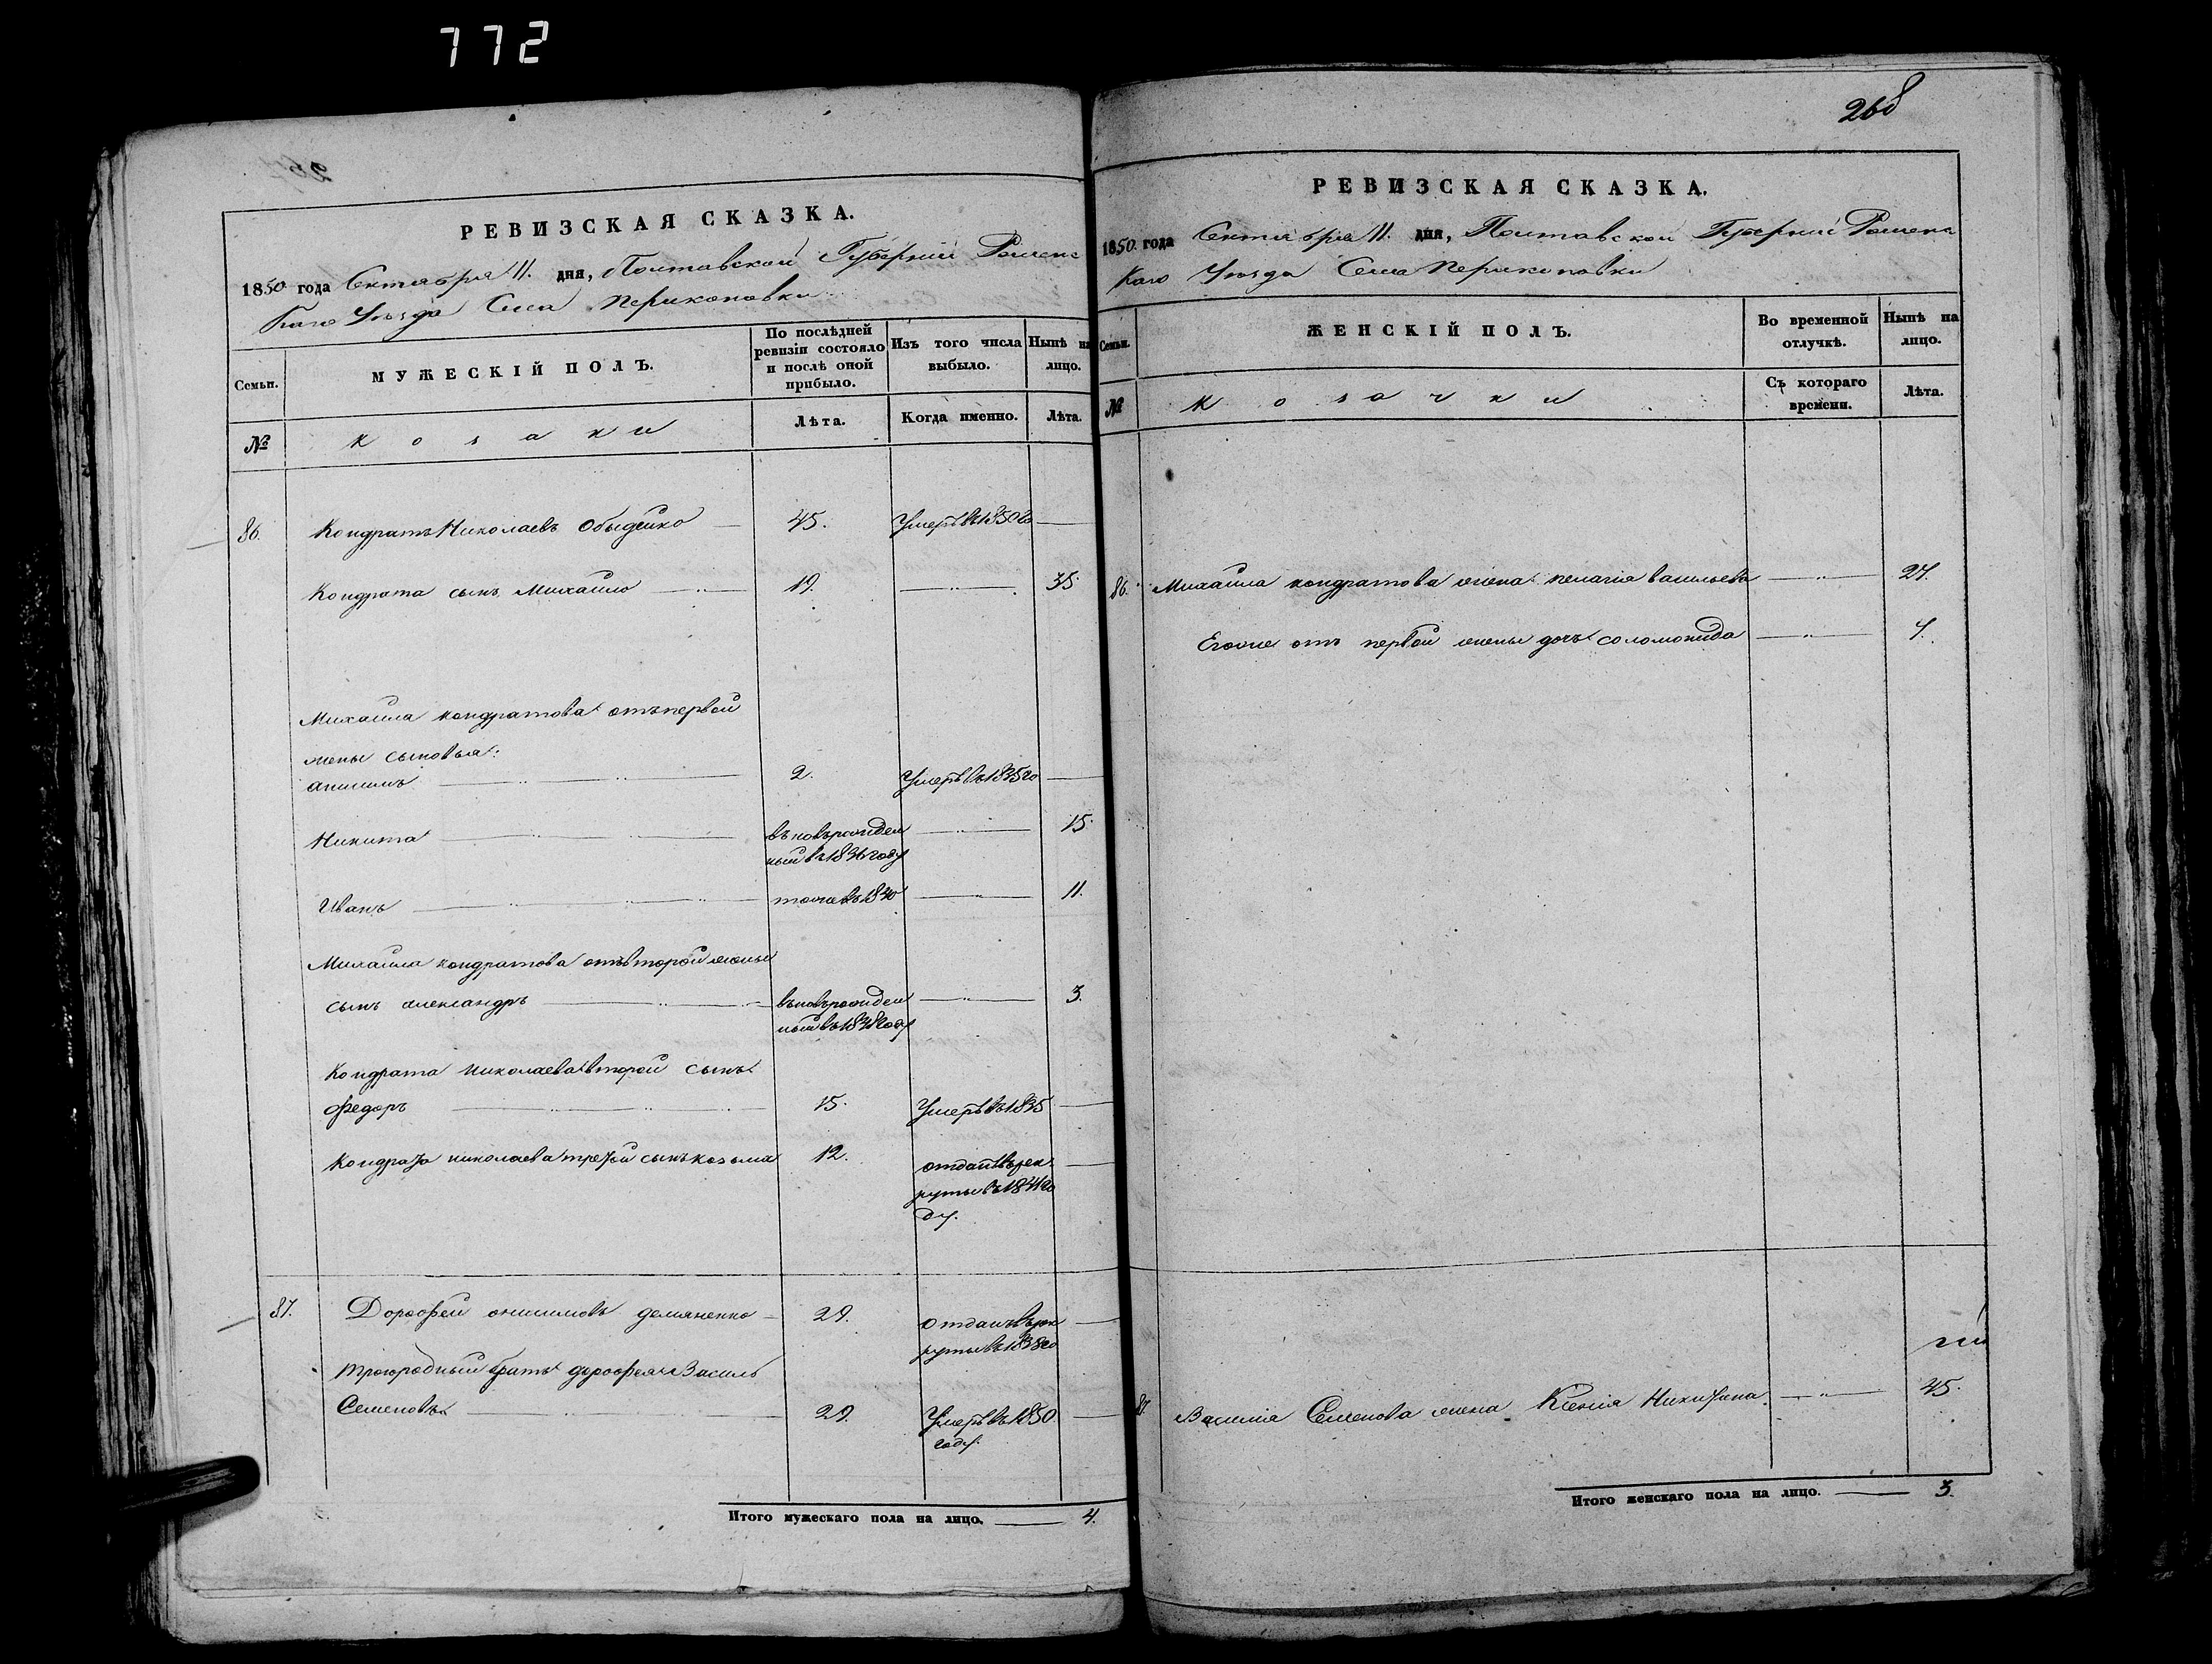 772
268
РЕВИЗСКАЯ СКАЗКА.
1850 года Сентября 11. дня, Полтавской Губерніи Роменс
каго Уезда Села Перикоповки
Семьи.
МУЖЕСКІЙ ПОЛЪ.
По послѣдней ревизіи состояло и послѣ оной прибыло.
Изъ того числа выбыло.
Нынѣ на лицо.
№
козаки
Лѣта.
Когда именно.
Лѣта.
86.
Кондратъ Николаевъ Обыдейко
45.
Умеръ въ 1850 го
Кондрата сынъ Михайло
19.
35
Михайла кондратова отъ первой
жены сыновья:
анисимъ
2.
Умеръ въ 1835 го
Никита
въновьрожден
ный въ 1836 году
15.
Иванъ
тоже въ 1840
11.
Михайла кондратова отъ второй жены
сынъ александръ
въновьрожден
ный въ 1848 году
3.
Кондрата николаева второй сынъ
Федоръ
15.
Умеръ въ 1835
Кондрата николаева третой сынъ козьма
12.
отданъ въ рек
руты въ 1841 го
ду.
87.
Дорофей онисимовъ демяненко
29.
отданъ въ рек
руты въ 1838 го
троюродный братъ дорофея Василь
Семеновъ
29.
Умеръ въ 1850
году.
Итого мужескаго пола на лицо. 4.
РЕВИЗСКАЯ СКАЗКА.
1850 года Сентября 11. дня, Полтавской Губерніи Роменс
каго Уезда Села Перикоповки
Семьи.
ЖЕНСКІЙ ПОЛЪ.
Во временной отлучкѣ.
Нынѣ на лицо.
№
козачки
Съ котораго времени.
Лѣта.
86.
Михайла кондратова жена пелагія васильева
27.
Егоже отъ первой жены дочь соломонида
7.
87.
Василія Семенова жена Ксенія Никитина
45.
Итого женскаго пола на лицо. 3.